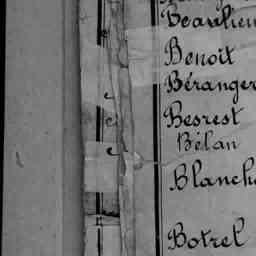 Beaulieu
Benoit
Béranger
Besrest
Bélan
Blanch
Botrel